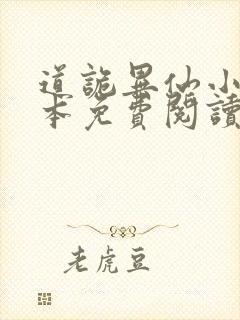 道詭異仙小
本免費閱讀
老虎豆